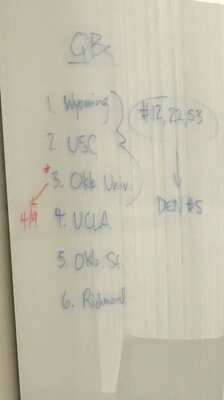 QBs
1. Wyoming
2. USC
* 3. Okla. Univ.
4. UCLA
5. Okla. St.
6. Richmond
4/9
#12, 22, 53
DEN #5